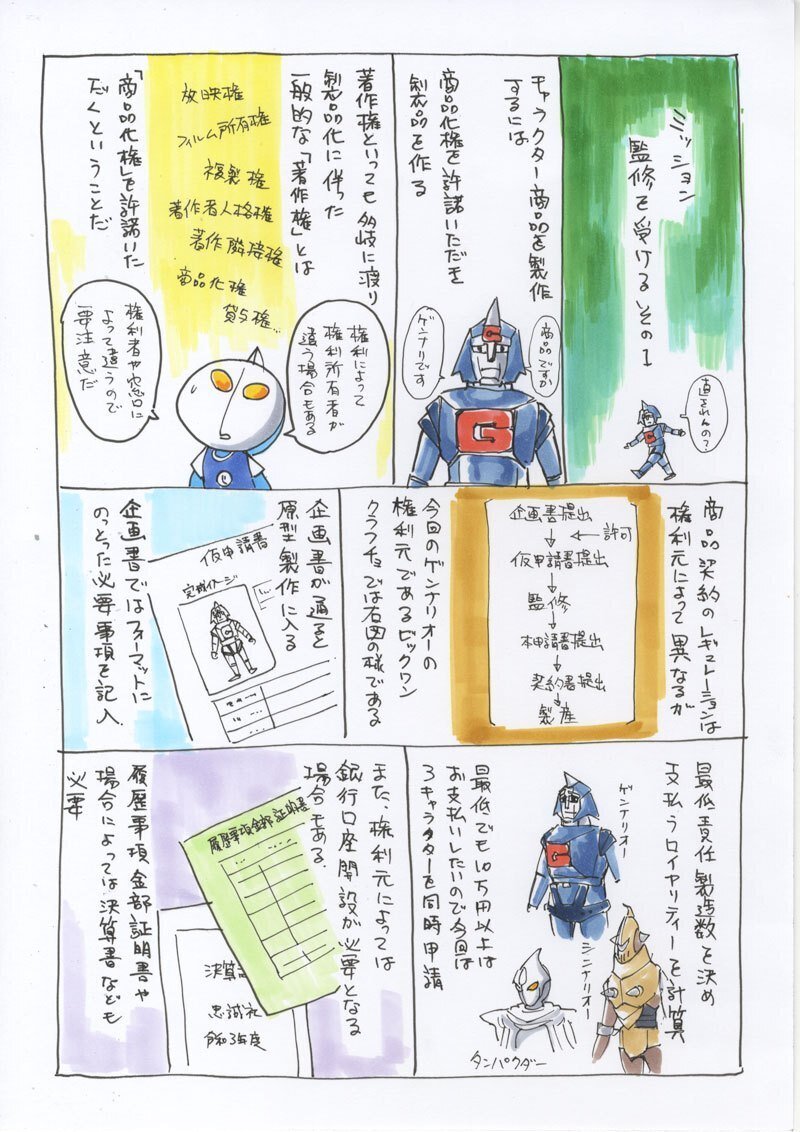 ミッション
監修を受ける その1
直されんの?
キャラクター商品を製作
するには
商品化権を許諾いただき
製品を作る
商品ですか
ゲンナリです
G
G
著作権といっても多岐に渡り
製品化に伴った
一般的な「著作権」とは
放映権
フィルム所有権
複製権
著作者人格権
著作隣接権
商品化権
貸与権…
「商品化権」を許諾いた
だくということだ
権利によって
権利所有者が
違う場合もある
権利者や窓口に
よって違うので
要注意だ
商品契約のレギュレーションは
権利元によって異なるが
企画書提出
許可
仮申請書提出
監修
本申請書提出
契約書提出
製産
今回のゲンナリオーの
権利元であるビックワン
クラフチョでは右図の様である
企画書が通ると
原型製作に入る
仮申請書
完成イメージ
企画書ではフォーマットに
のっとった必要事項を記入
最低責任製造数を決め
支払うロイヤリティーを計算
ゲンナリオー
G
ジンナリオー
タンパクダー
最低でも10万円以上は
お支払いしたいので今回は
3キャラクターを同時申請
また、権利元によっては
銀行口座開設が必要となる
場合もある
履歴事項全部証明書
決算
忠誠社
令和3年度
履歴事項全部証明書や
場合によっては決算書なども
必要